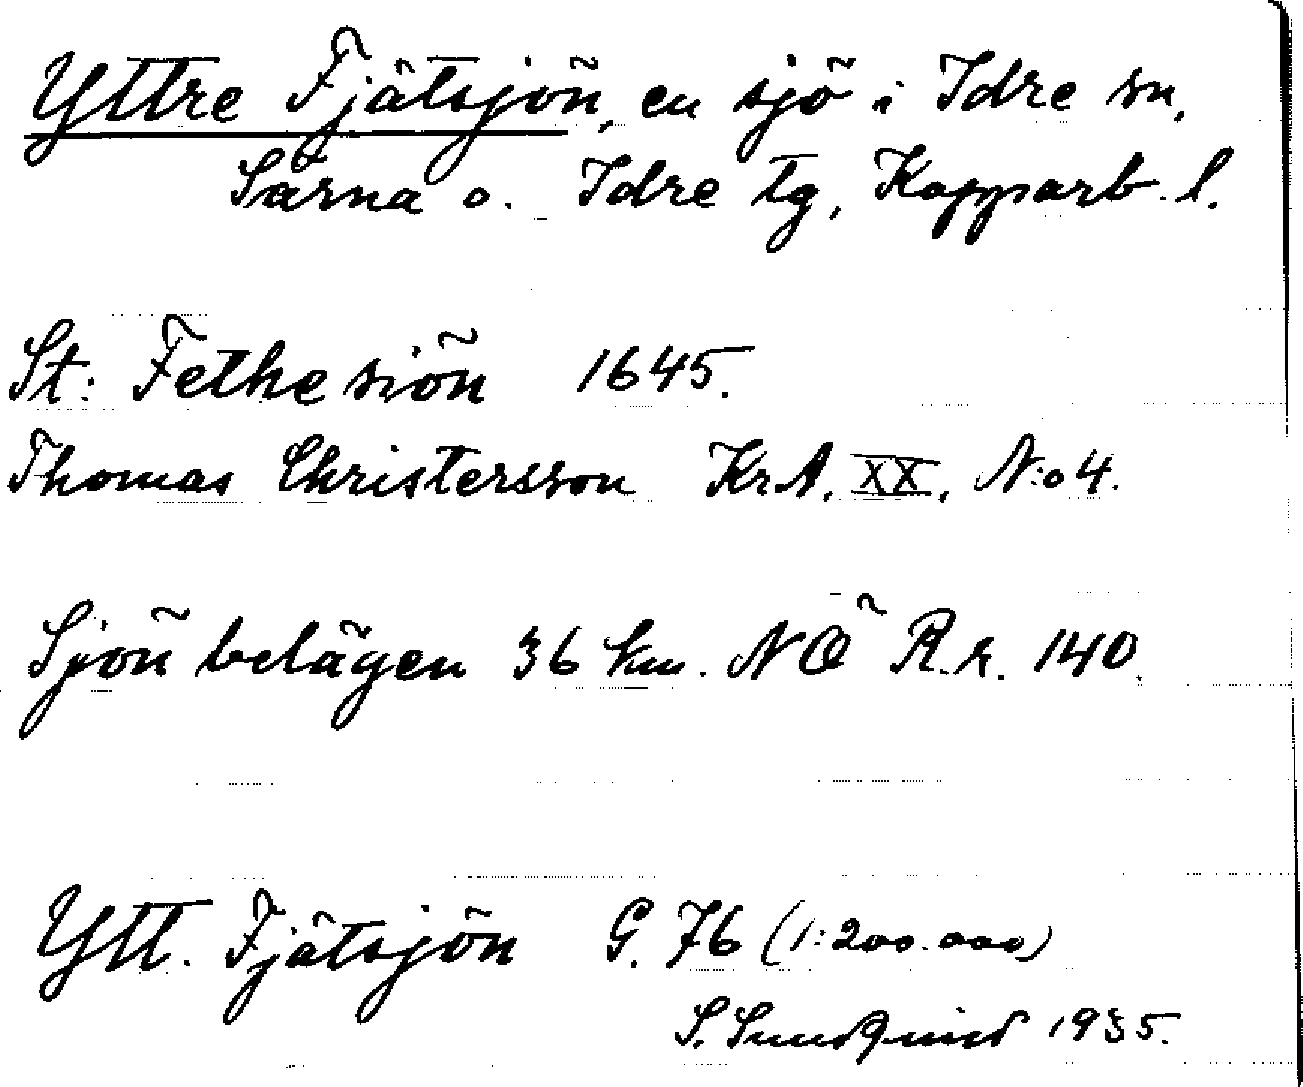 Yttre Fjätsjön, en sjö i Idre sn,
Särna o. Idre tg, Kopparb. l.
St: Fethesiön 1645.
Thomas Christersson Kr.A. XX, N:o 4.
Sjön belägen 36 km. NÖ R.r. 140.
Ytt. Fjätsjön G. 76 (1:200.000)
S. Sundquist 1935.